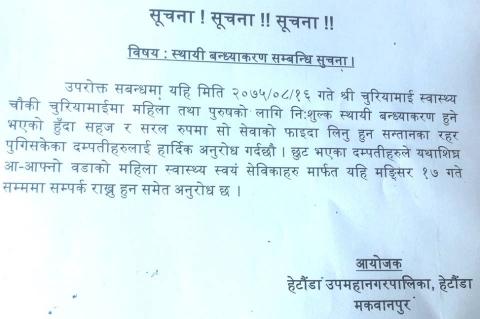 सूचना ! सूचना !! सूचना !!
विषय : स्थायी बन्ध्याकरण सम्बन्धि सुचना ।
उपरोक्त सबन्धमा यहि मिति २०७५/०८/१६ गते श्री चुरियामाई स्वास्थ्य
चौकी चुरियामाईमा महिला तथा पुरुषको लागि नि:शुल्क स्थायी बन्ध्याकरण हुने
भएको हुँदा सहज र सरल रुपमा सो सेवाको फाइदा लिनु हुन सन्तानका रहर
पुगिसकेका दम्पतीहरुलाई हार्दिक अनुरोध गर्दछौ । छुट भएका दम्पतीहरुले यथाशिघ्र
आ-आफ्नो वडाको महिला स्वास्थ्य स्वयं सेविकाहरु मार्फत यहि मङ्सिर १७ गते
सम्ममा सम्पर्क राख्नु हुन समेत अनुरोध छ ।
आयोजक
हेटौंडा उपमहानगरपालिका, हेटौंडा
मकवानपुर